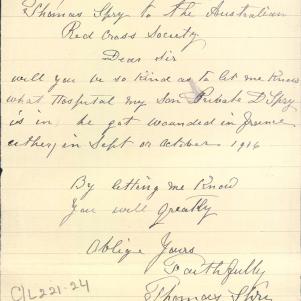 Thomas Spry to the Australian
Red Cross Society
Dear Sir
will you be so kind as to let me know
what Hospital my Son Private D Spry
is in he got wounded in
either in Sept or October 1916
By letting me Know
You will greatly
Oblige Yours
Faithfully
Thomas Spry
C/L221-24